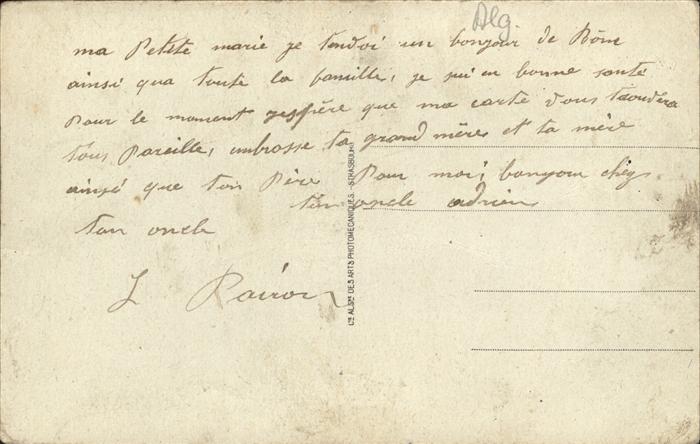 Alg.
ma Petite marie je tendoi un bonjour de Bône
ainsi qua toute la famille, je sui en bonne santé
Pour le moment jespère que ma carte vous trouvera
tous Pareille, umbrosse ta grand mère et ta mère
ainsi que ton Père Pour moi, bonjour chèz
ton oncle adrien
ton oncle
Cie ALSne DES ARTS PHOTOMÉCANIQUES - STRASBOURG